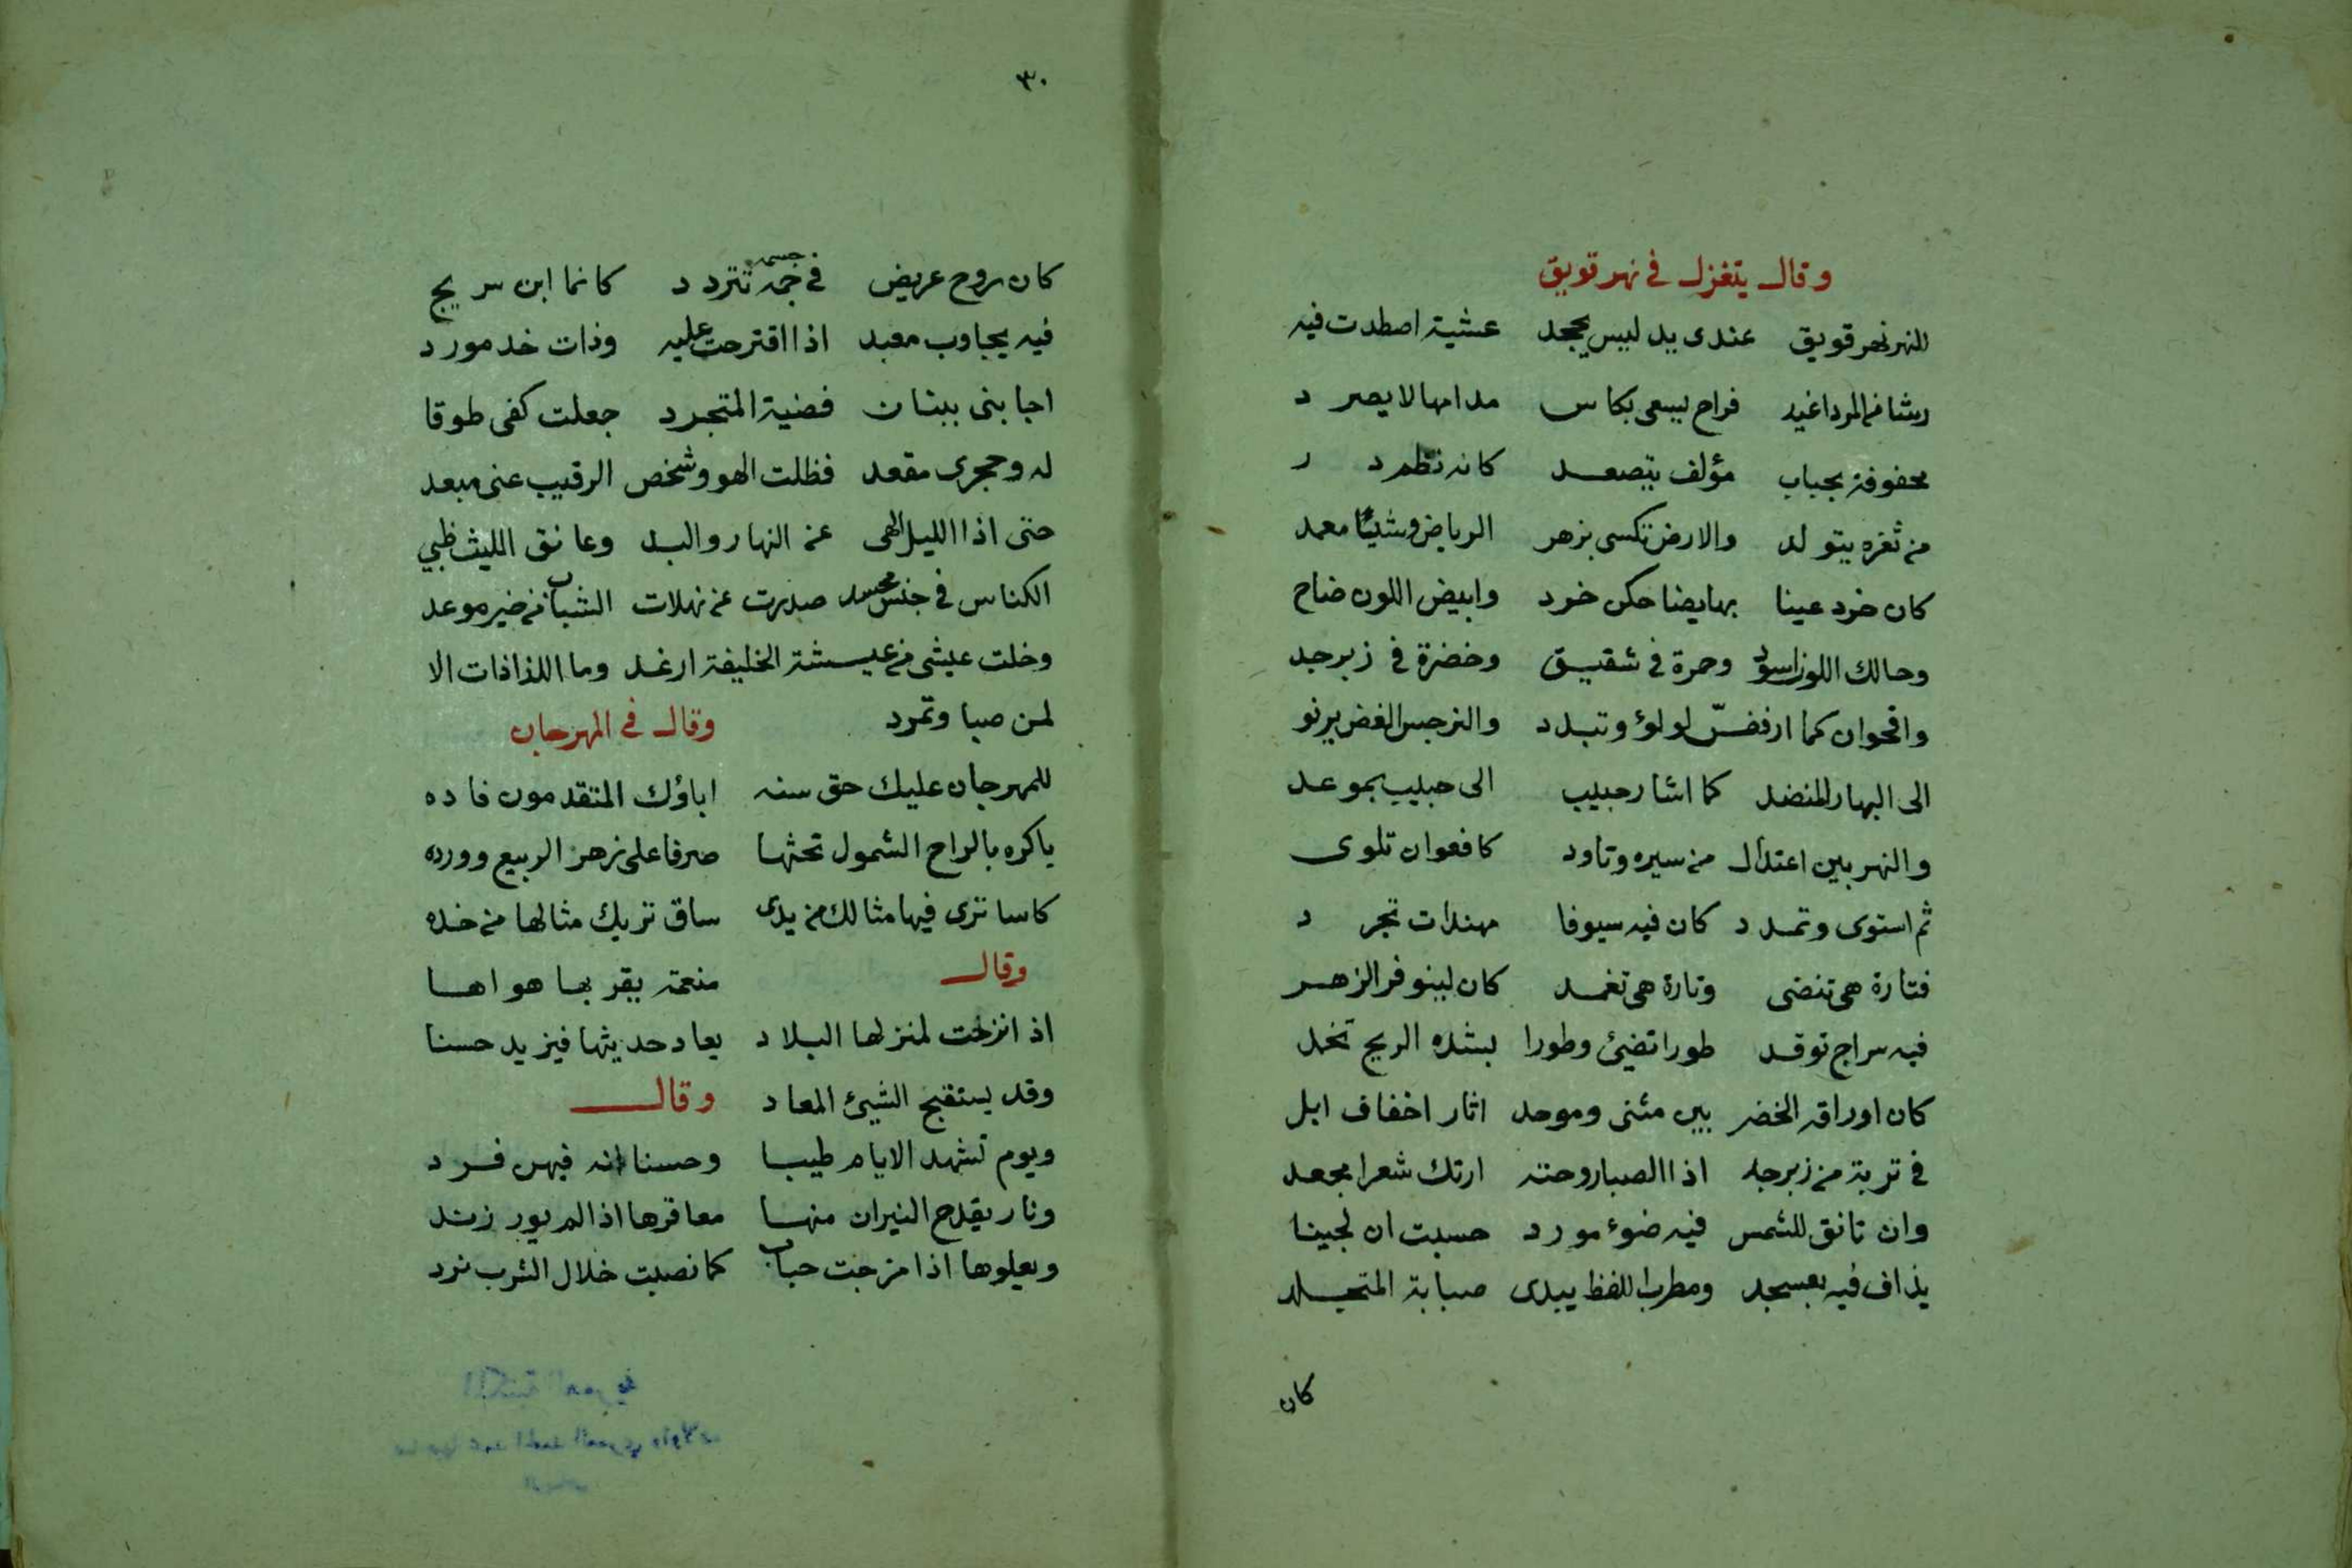 وقال يتغزل في نهر قويق
للنهر نهر قويق عندى يد ليس يجحد عشية اصطدت فيه
رشا من المرد اغيد فراح يسعى بكاس مدامها لا يصرد
محفوفة بحباب مؤلف يتصعد كانه نظم در
من ثغره يتولد والارض تكسى بزهر الرياض وشيا معمد
كان خرد عينا بها يضاحكن خرد وابيض اللون ضاح
وحالك اللون اسود وحمرة في شقيق وخضرة في زبرجد
واقحوان كما ارفضّ لولؤ وتبدد والنرجس الغض يرنو
الى البهار المنضد كما اشار حبيب الى حبيب بموعد
والنهر بين اعتدال من سيره وتاود كافعوان تلوى
ثم استوى وتمدد كان فيه سيوفا مهندات تجرد
فتارة هي تنضى وتارة هي تغمد كان لينوفر الزهر
فيه سراج توقد طورا تضيئ وطورا بشده الريح تخمد
كان اوراقه الخضر بين مثنى وموحد اثار اخفاف ابل
في تربة من زبرجد اذا الصبا روحته ارتك شعرا مجعد
وان تانق للشمس فيه ضوء مورد حسبت ان لجينا
يذاف فيه بعسجد ومطرب اللفظ يبدى صبابة المتجلد
كان
٣٠
كان روح عريض في جمه جسمه تتردد كانما ابن سريج
فيه يجاوب معبد اذا اقترحت عليه وذات خد مورد
اجابنى ببنان فضية المتجرد جعلت كفى طوقا
له وحجرى مقعد فظلت الهو وشخص الرقيب عنى مبعد
حتى اذا الليل الهى عن النهار والبد وعانق الليث ظبي
الكناس في جنس محسد صدرت عن نهلات الشباب من خير موعد
وخلت عيشى من عيشة الخليفة ارغد وما اللذاذات الا
لمن صبا وتمرد
وقال في المهرجان
للمهرجان عليك حق سنه اباؤك المتقدمون فاده
باكره بالراح الشمول تحثها صرفا على زهر الربيع وورده
كاسا ترى فيها مثالك من يدى ساق تريك مثالها من خده
وقال
منعمة يقر بها هواها
اذ انزلت لمنزلها البلاد يعاد حديثها فيزيد حسنا
وقد يستقبح الشيئ المعاد
وقال
ويوم تشهد الايام طيبا وحسنا انه فيهن فرد
ونار يقدح النيران منها معاقرها اذا لم يور زند
ويعلوها اذا مزجت حباب كما نصبت خلال الشرب نرد